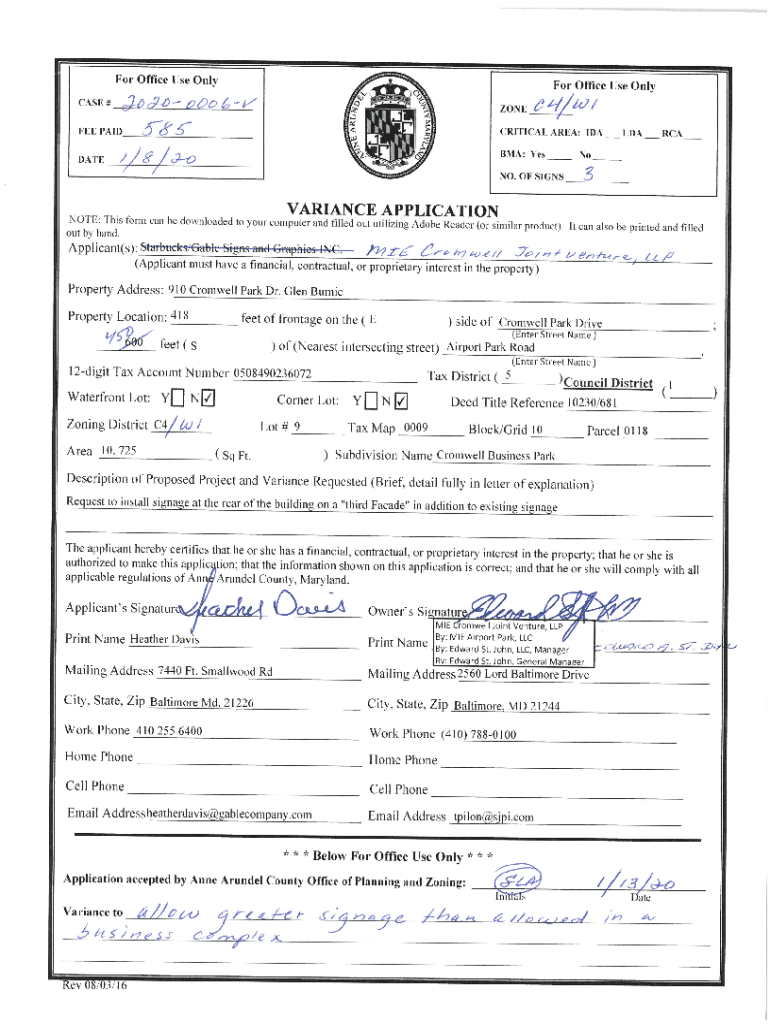 For Office Use Only
CASE # 2020-0006-V
FEE PAID 585
DATE 1/8/20
ANNE ARUNDEL COUNTY MARYLAND
For Office Use Only
ZONE C4/W1
CRITICAL AREA: IDA ___ LDA ___ RCA ___
BMA: Yes ____ No ____
NO. OF SIGNS 3
VARIANCE APPLICATION
NOTE: This form can be downloaded to your computer and filled out utilizing Adobe Reader (or similar product). It can also be printed and filled
out by hand.
Applicant(s): Starbucks/Gable Signs and Graphics INC. MIE Cromwell Joint Venture, LLP
(Applicant must have a financial, contractual, or proprietary interest in the property)
Property Address: 910 Cromwell Park Dr. Glen Burnie
Property Location: 418 feet of frontage on the ( E ) side of Cromwell Park Drive ;
(Enter Street Name )
450 600 feet ( S ) of (Nearest intersecting street) Airport Park Road .
(Enter Street Name )
12-digit Tax Account Number 0508490236072 Tax District ( 5 ) Council District ( 1 )
Waterfront Lot: Y ☐ N ☑ Corner Lot: Y ☐ N ☑ Deed Title Reference 10230/681
Zoning District C4/W1 Lot # 9 Tax Map 0009 Block/Grid 10 Parcel 0118
Area 10,725 ( Sq Ft. ) Subdivision Name Cromwell Business Park
Description of Proposed Project and Variance Requested (Brief, detail fully in letter of explanation)
Request to install signage at the rear of the building on a "third Facade" in addition to existing signage
The applicant hereby certifies that he or she has a financial, contractual, or proprietary interest in the property; that he or she is
authorized to make this application; that the information shown on this application is correct; and that he or she will comply with all
applicable regulations of Anne Arundel County, Maryland.
Applicant's Signature Heather Davis Owner's Signature Edward St. John
MIE Cromwell Joint Venture, LLP
By: MIE Airport Park, LLC
By: Edward St. John, LLC, Manager
By: Edward St. John, General Manager
Print Name Heather Davis Print Name Edward A. St. John
Mailing Address 7440 Ft. Smallwood Rd Mailing Address 2560 Lord Baltimore Drive
City, State, Zip Baltimore Md. 21226 City, State, Zip Baltimore, MD 21244
Work Phone 410 255 6400 Work Phone (410) 788-0100
Home Phone Home Phone
Cell Phone Cell Phone
Email Address heatherdavis@gablecompany.com Email Address tpilon@sjpi.com
* * * Below For Office Use Only * * *
Application accepted by Anne Arundel County Office of Planning and Zoning: SLA 1/13/20
Initials Date
Variance to allow greater signage than allowed in a
business complex
Rev 08/03/16